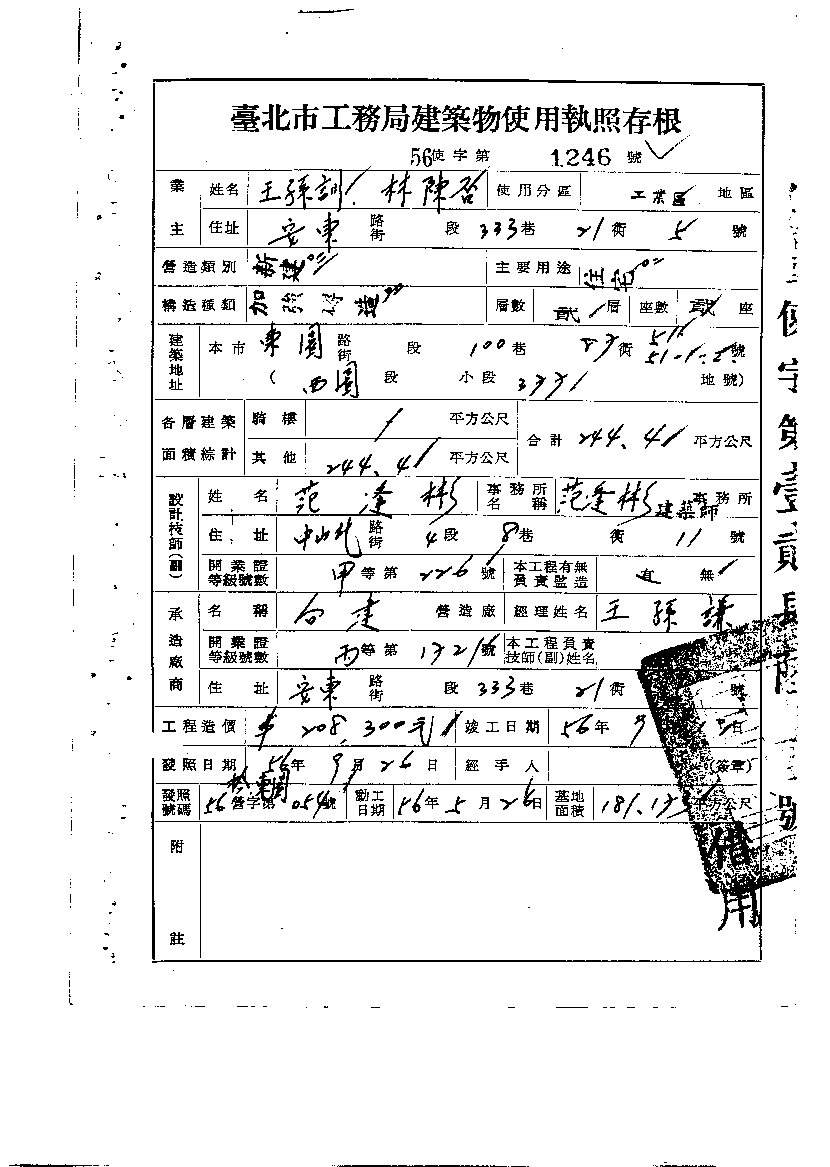 臺北市工務局建築物使用執照存根
56使字第 1246 號
業主 姓名 王孫訓 林陳 使用分區 工業區 地區
住址 安東 路街 段 333巷 21衖 5 號
營造類別 新建 主要用途 住宅
構造種類 加強磚造 層數 貳 層 座數 貳 座
建築地址 本市 東園 路街 段 100巷 衖 號
( 西園 段 小段 地號)
各層建築面積綜計 騎樓 平方公尺 合計 244.41 平方公尺
其他 244.41 平方公尺
設計技師(副) 姓名 范逢彬 事務所名稱 范逢彬建築師事務所
住址 中山北 路街 4段 8巷 衖 11 號
開業證等級號數 甲等第 226 號 本工程有無負責監造 有 無
承造廠商 名稱 合建 營造廠 經理姓名 王孫謀
開業證等級號數 丙等第 號 本工程負責技師(副)姓名
住址 安東 路街 段 333巷 21衖 號
工程造價 208,300元 竣工日期 56年 9 日
發照日期 56年 9月 26日 經手人 (簽章)
發照號碼 56營字第 號 動工日期 56年 5月 26日 基地面積 平方公尺
附註
使字第壹貳 號
借用